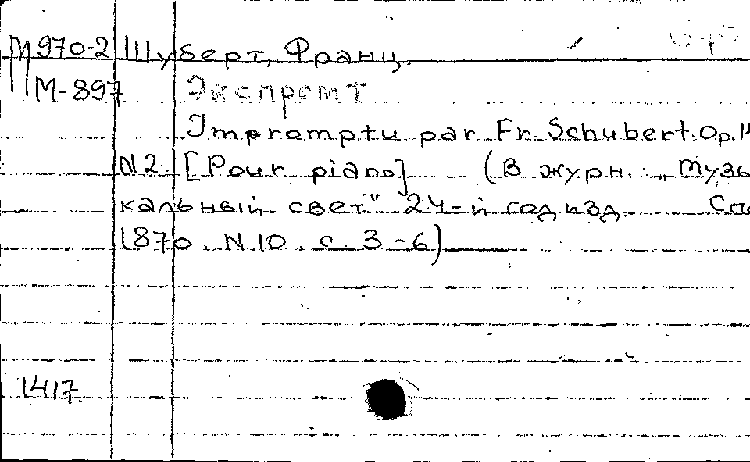 М 970-2 Шуберт, Франц.
М-897 Экспромт
Impromptu par Fr. Schubert. Op. 14
N 2. [Pour piano] (В журн. "Музы
кальный свет" 24-й год изд.
1870. N. 10. с. 3-6)
1417